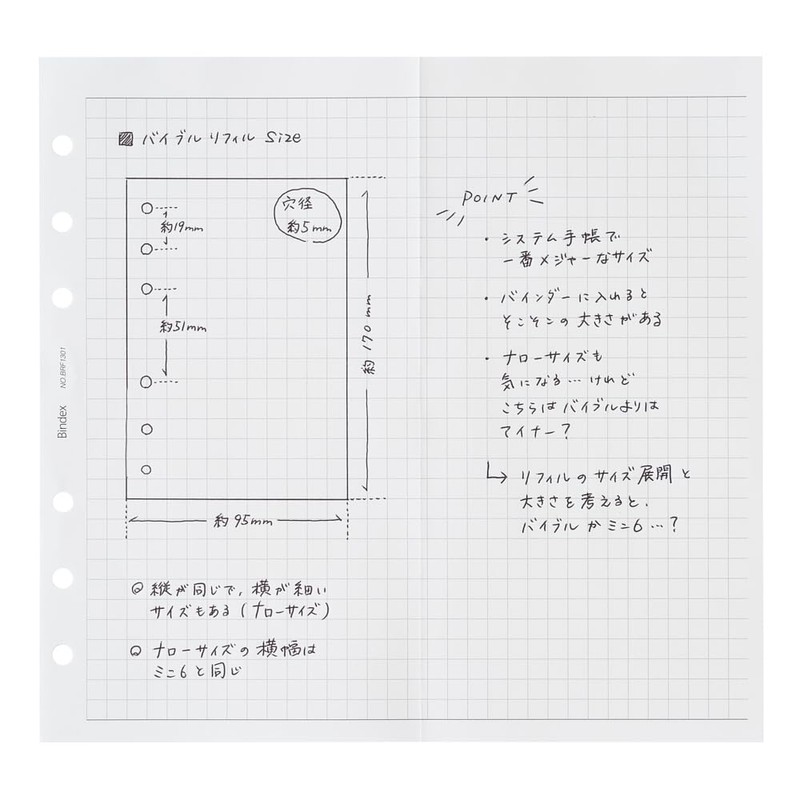 バイブル リフィル Size
穴径
約5mm
約19mm
約51mm
約170mm
約95mm
縦が同じで、横が細い
サイズもある(ナローサイズ)
ナローサイズの横幅は
ミニ6と同じ
POINT
・システム手帳で
一番メジャーなサイズ
・バインダーに入れると
そこそこの大きさがある
・ナローサイズも
気になる…けれど
こちらはバイブルよりは
マイナー?
リフィルのサイズ展開と
大きさを考えると、
バイブルかミニ6…?
Bindex NO.BRF1301